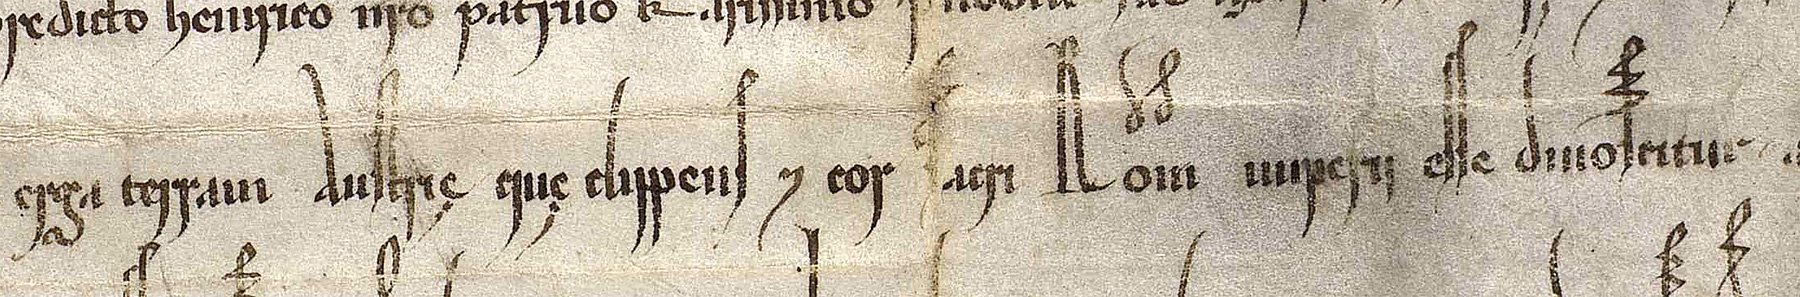 predicto heinrico nr̄o patruo karissimo
erga terram austrię quę clippeus ⁊ cor sacri Rom̄ imperij esse dinoscitur